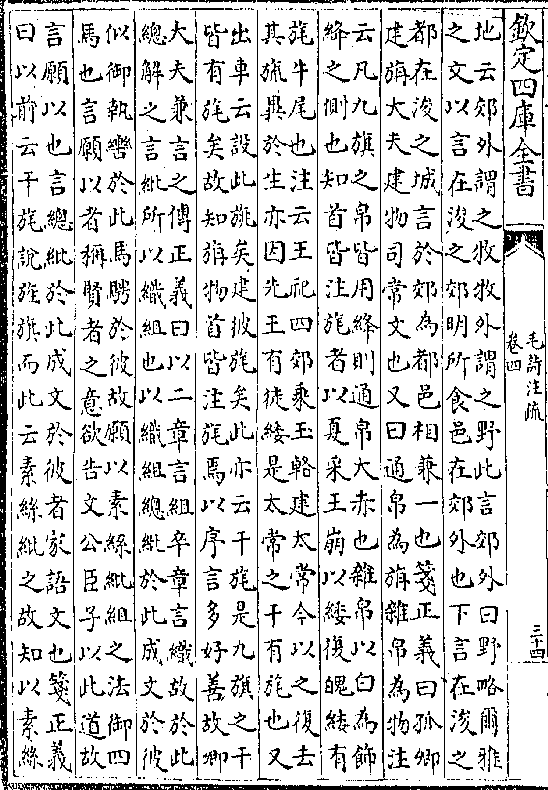 欽定四庫全書
毛詩注疏
卷四
三十四
地云郊外謂之牧牧外謂之野此言郊外曰野略爾雅
之文以言在浚之郊明所食邑在郊外也下言在浚之
都在浚之城言於郊為都邑相兼一也箋正義曰孤卿
建旃大夫建物司常文也又曰通帛為旃雜帛為物注
云凡九旗之帛皆用絳則通帛大赤也雜帛以白為飾
絳之側也知首皆注旄者以夏采王崩以綏復魄綏有
旄牛尾也注云王祀四郊乘玉輅建太常今以之復去
其旒異於生亦因先王有徒綏是太常之干有旄也又
出車云設此旐矣建彼旄矣此亦云干旄是九旗之干
皆有旄矣故知旃物首皆注旄焉以序言多好善故卿
大夫兼言之傳正義曰以二章言組卒章言織故於此
總解之言紕所以織組也以織組總紕於此成文於彼
似御執轡於此馬騁於彼故願以素絲紕組之法御四
馬也言願以者稱賢者之意欲告文公臣子以此道故
言願以也言總紕於此成文於彼者家語文也箋正義
曰以前云干旄說旌旗而此云素絲紕之故知以素絲